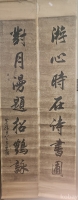 游心時在詩書圃
對月漫題招鶴詠